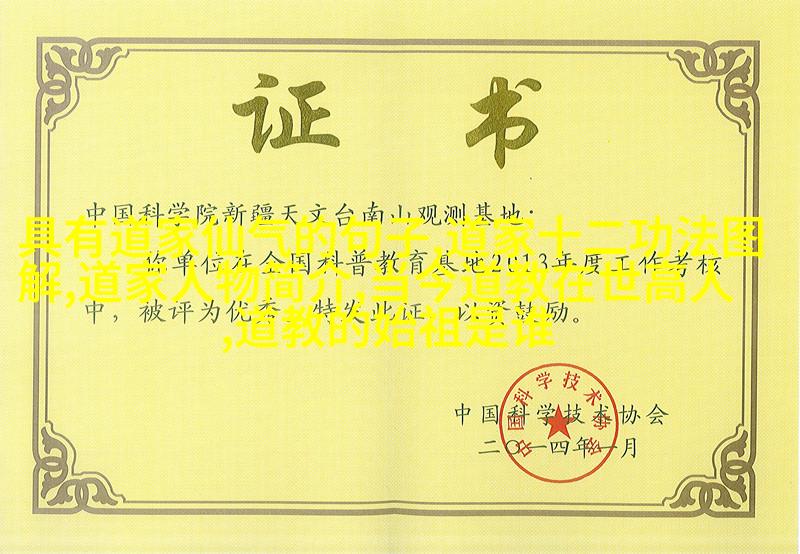 证 书
中国科学院新疆天文台南山观测基地:
具有道家仙气的句子,道家十二功法图
你单位在全国科普教育基地2013年度工作考核
解,道家人物简介,当今道教在世高人
中,被评为优秀。特发此证,以资鼓励。
,道教的始祖是谁
中国科学技术协会
二〇一四年一月
中国科学技术协会